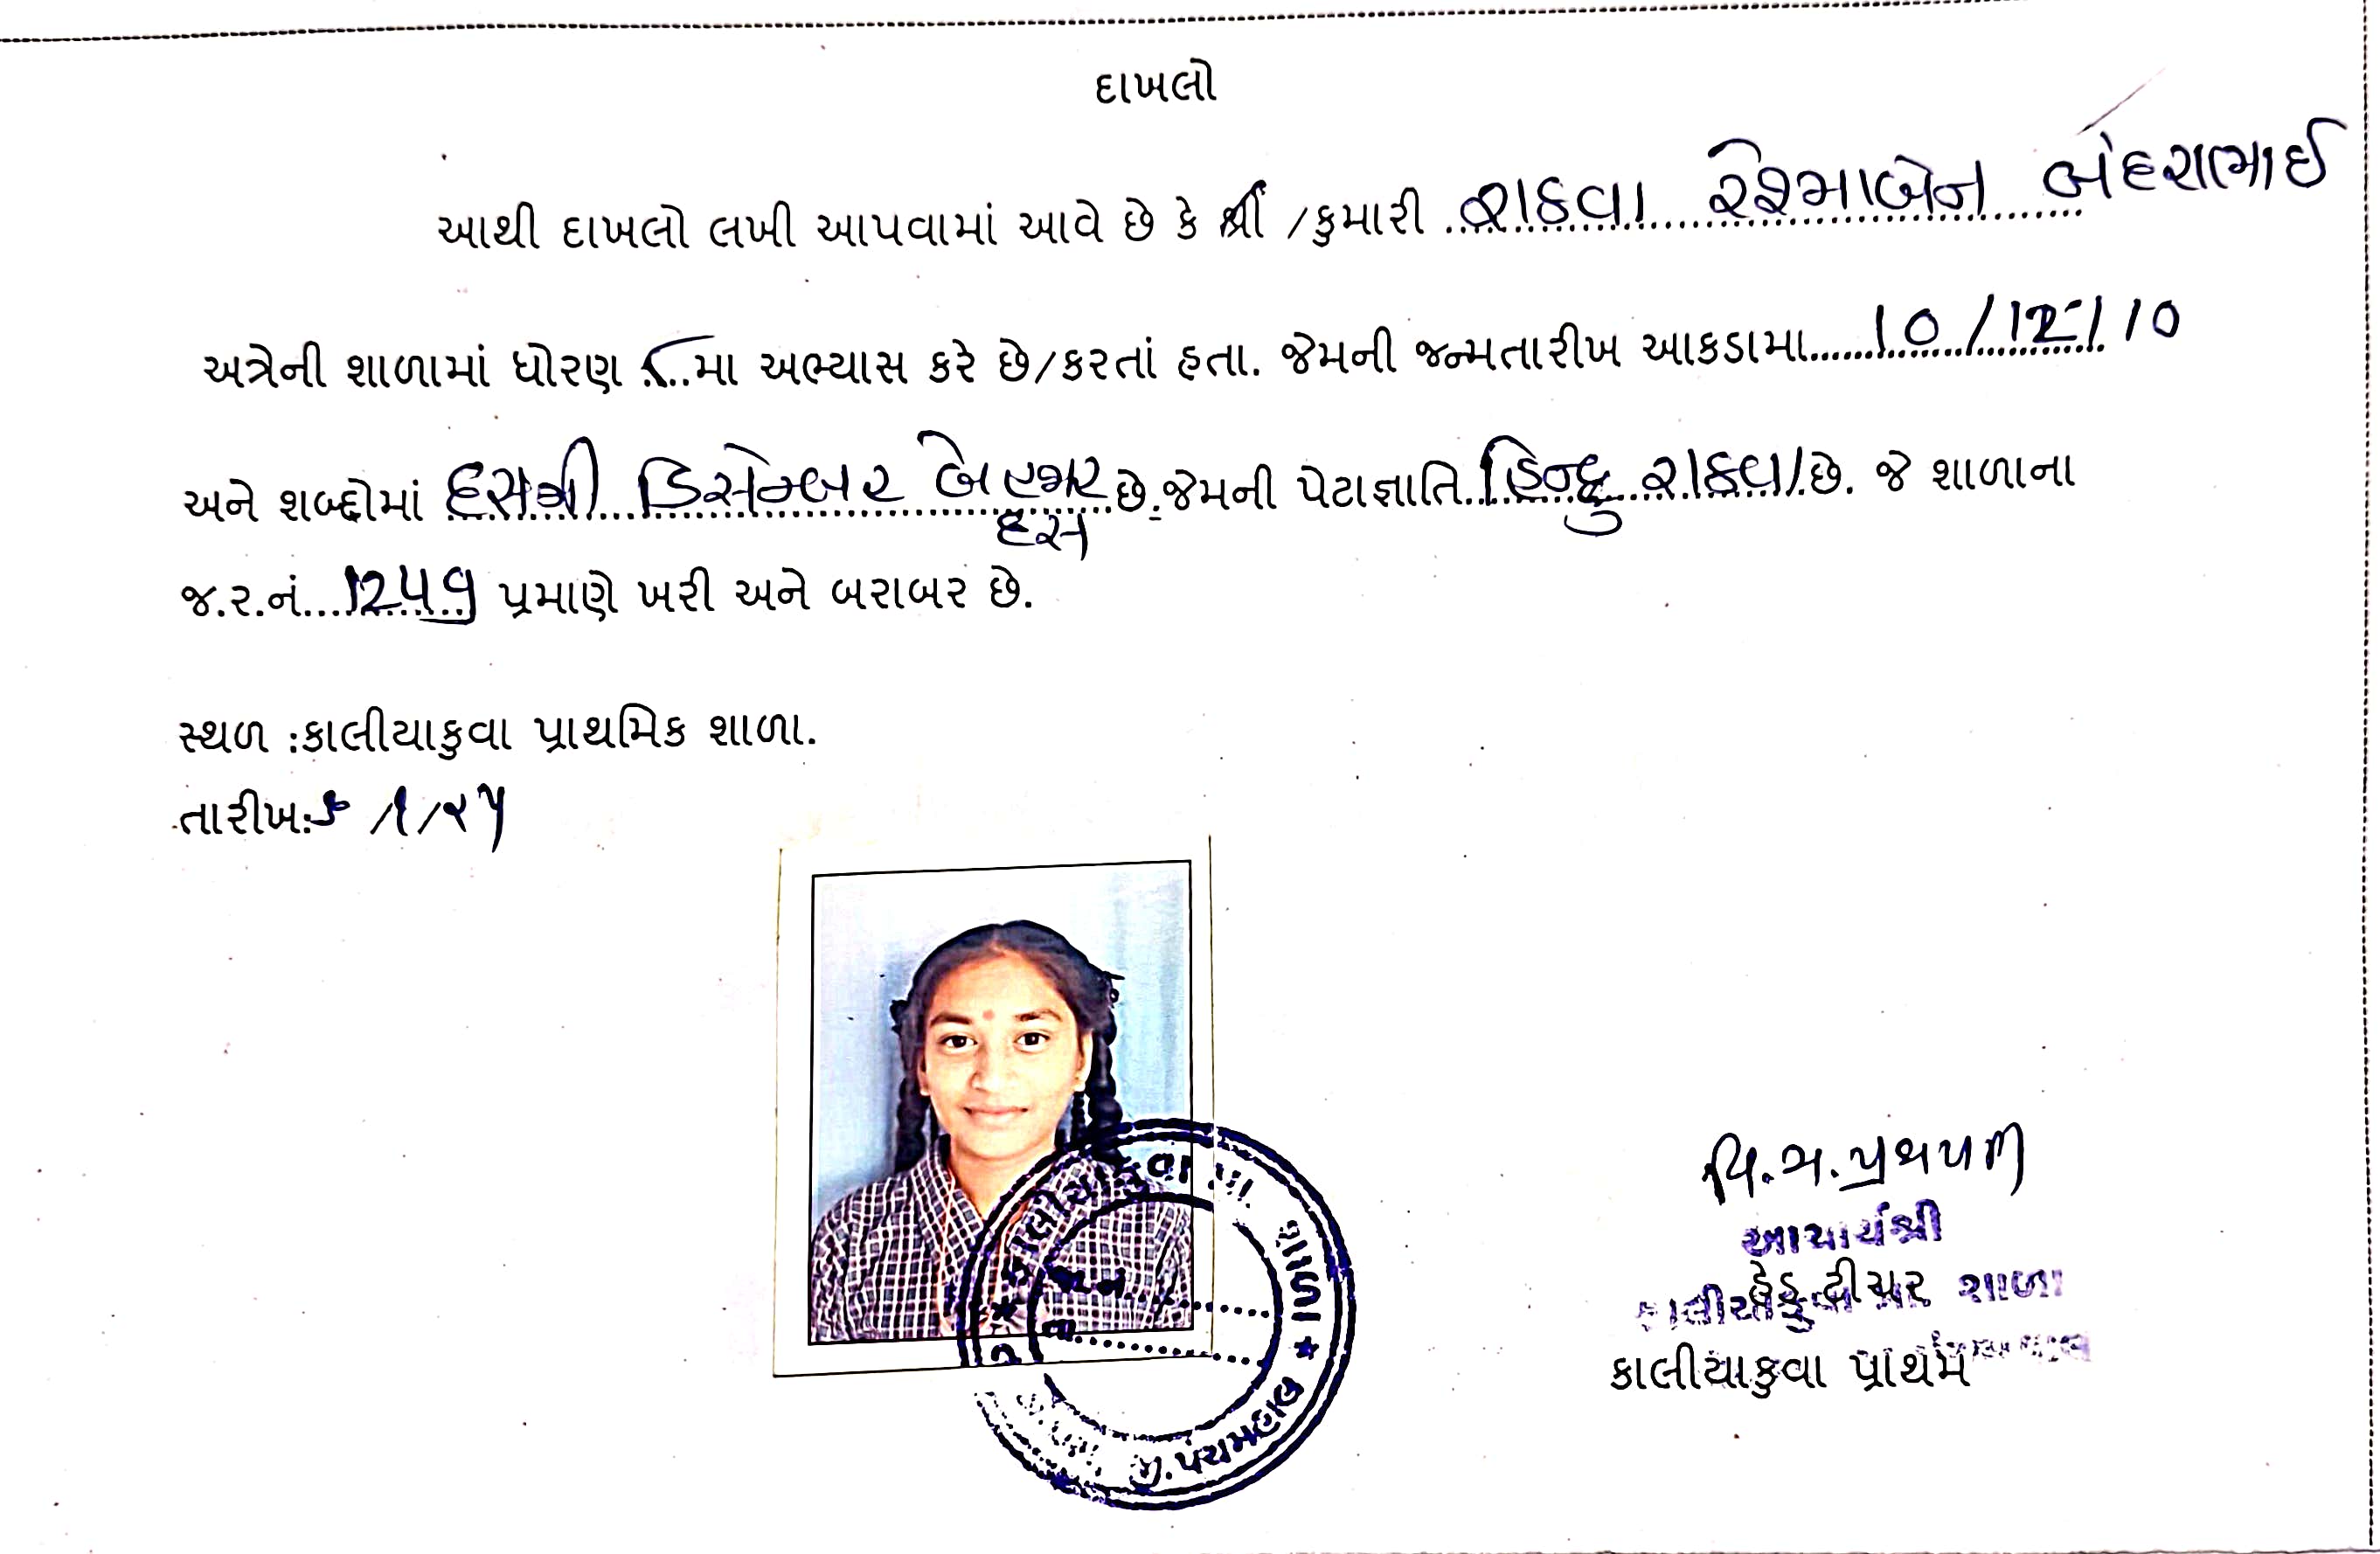 દાખલો
આથી દાખલો લખી આપવામાં આવે છે કે શ્રી /કુમારી રાઠવા રેશ્માબેન બંદરાભાઈ
અત્રેની શાળામાં ધોરણ ૮ મા અભ્યાસ કરે છે/કરતાં હતા. જેમની જન્મતારીખ આકડામા 10/12/10
અને શબ્દોમાં દસમી ડિસેમ્બર બે હજાર છે.જેમની પેટાજ્ઞાતિ હિન્દુ રાઠવા છે. જે શાળાના
દસ
જ.ર.નં. પ્રમાણે ખરી અને બરાબર છે.
સ્થળ :કાલીયાકુવા પ્રાથમિક શાળા.
તારીખ: /૧/૨૫
કાલીયાકુવા પ્રા. શાળા
જા.નં.
તા.
જી.પંચમહાલ
આચાર્યશ્રી
હેડ ટીચર
કાલીયાકુવા પ્રા. શાળા
કાલીયાકુવા પ્રાથમિ